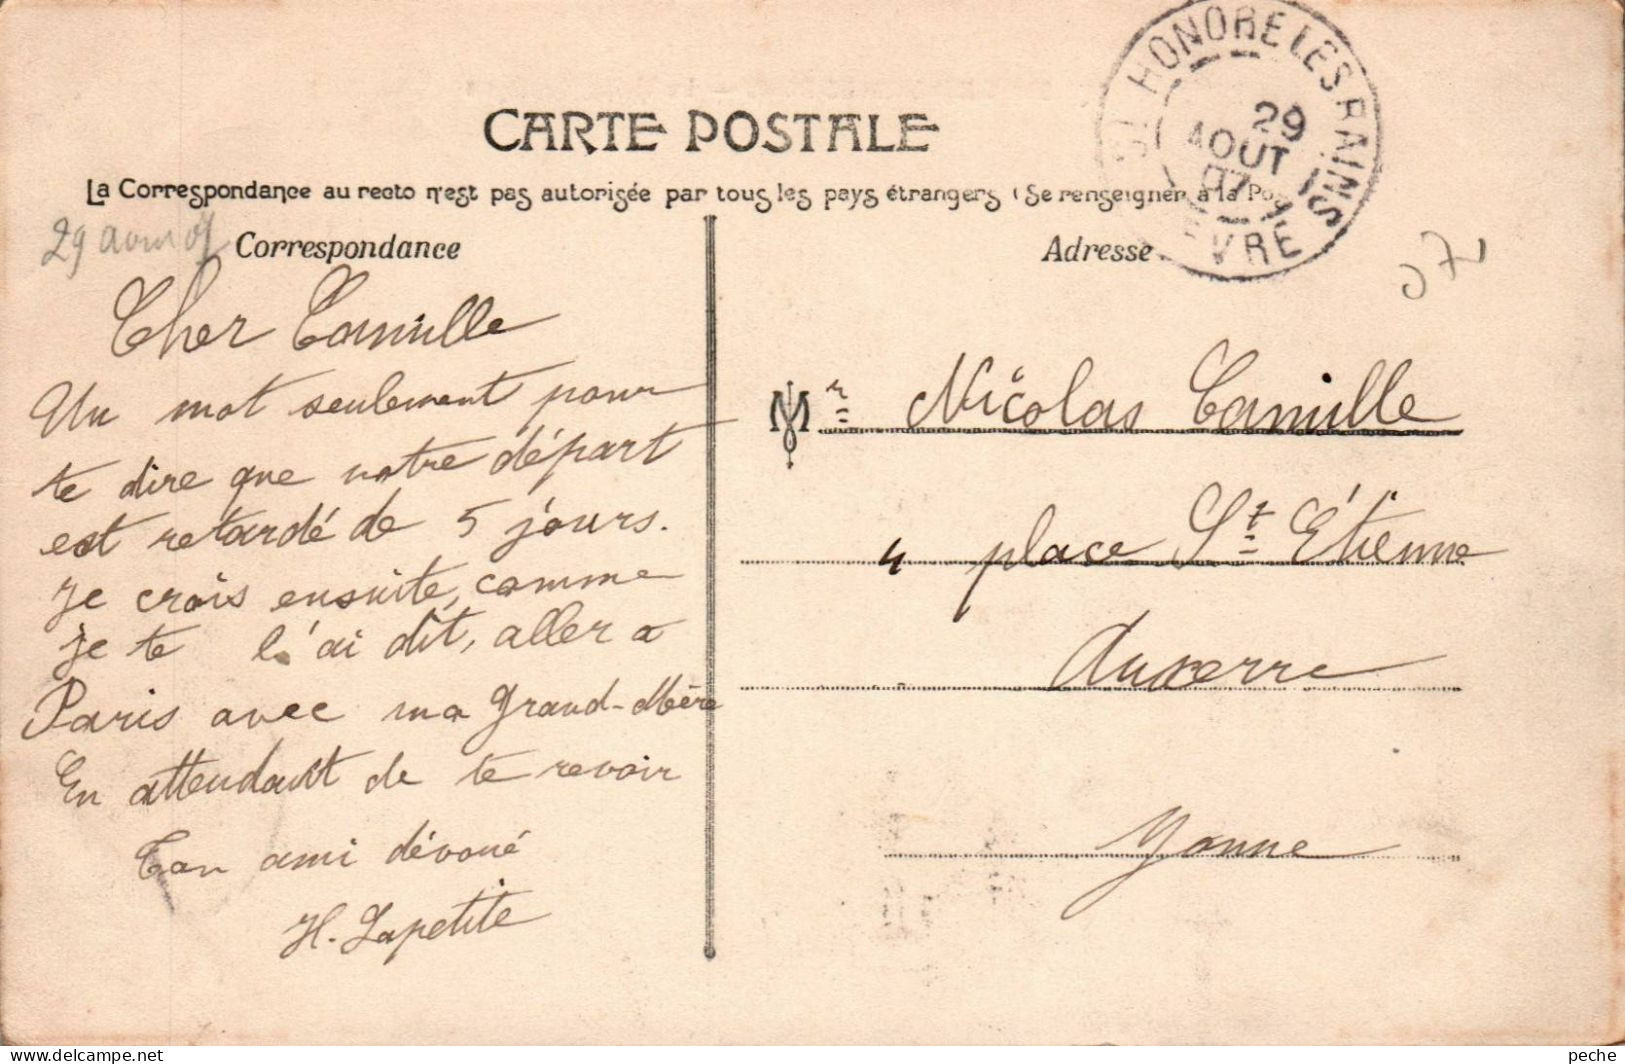 CARTE POSTALE
La Correspondance au recto n'est pas autorisée par tous les pays étrangers (Se renseigner à la Pos
ST HONORE LES BAINS
29
AOUT
07
VRE
29 07
Correspondance
Adresse
Cher Camille
Un mot seulement pour
te dire que notre départ
est retardé de 5 jours.
Je crois ensuite, comme
je te l'ai dit, aller a
Paris avec ma Grand-Mère
En attendant de te revoir
Ton ami dévoué
H. Lapetite
Mr Nicolas Camille
4 place St Étienne
Auxerre
Yonne
delcampe.net
peche